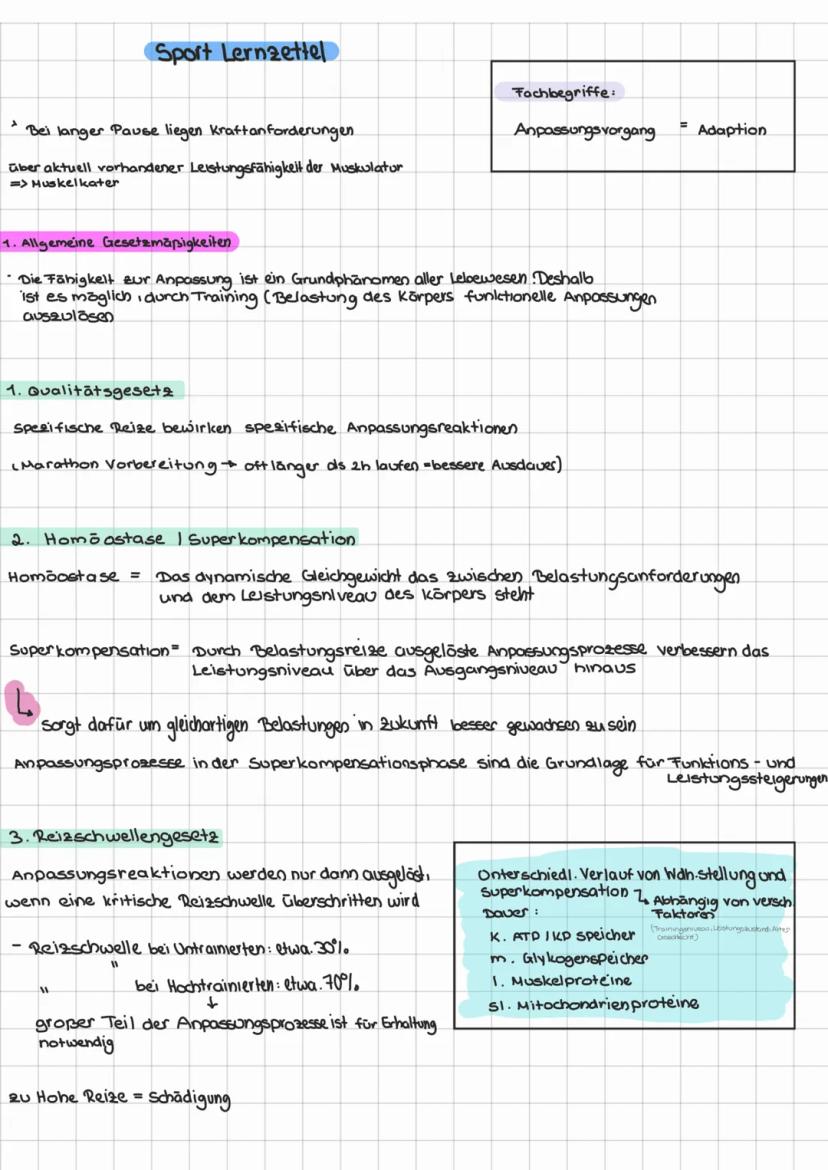 Sport Lernzettel
Fachbegriffe:
Anpassungsvorgang = Adaption
Bei langer Pause liegen Kraftanforderungen
über aktuell vorhandener Leistungsfähigkeit der Muskulatur
=> Muskelkater
1. Allgemeine Gesetzmäßigkeiten
· Die Fähigkeit zur Anpassung ist ein Grundphänomen aller Lebewesen! Deshalb
ist es möglich, durch Training (Belastung des Körpers funktionelle Anpassungen
auszulösen
1. Qualitätsgesetz
Spezifische Reize bewirken spezifische Anpassungsreaktionen
(Marathon Vorbereitung → oft länger als 2h laufen = bessere Ausdauer)
2. Homöostase | Superkompensation
Homöostase = Das dynamische Gleichgewicht das zwischen Belastungsanforderungen
und dem Leistungsniveau des Körpers steht
Superkompensation = Durch Belastungsreize ausgelöste Anpassungsprozesse verbessern das
Leistungsniveau über das Ausgangsniveau hinaus
↳ sorgt dafür um gleichartigen Belastungen in Zukunft besser gewachsen zu sein
Anpassungsprozesse in der Superkompensationsphase sind die Grundlage für Funktions- und
Leistungssteigerungen
3. Reizschwellengesetz
Anpassungsreaktionen werden nur dann ausgelöst,
wenn eine kritische Reizschwelle überschritten wird
- Reizschwelle bei Untrainierten: etwa 30%
" " bei Hochtrainierten: etwa 70%
↓
großer Teil der Anpassungsprozesse ist für Erhaltung
notwendig
zu Hohe Reize = Schädigung
Unterschiedl. Verlauf von Wdh.stellung und
Superkompensation ↳ Abhängig von versch.
Dauer: Faktoren
(Trainingsniveau, Leistungszustand, Alter,
Geschlecht)
K. ATP | KP Speicher
m. Glykogenspeicher
l. Muskelproteine
sl. Mitochondrienproteine